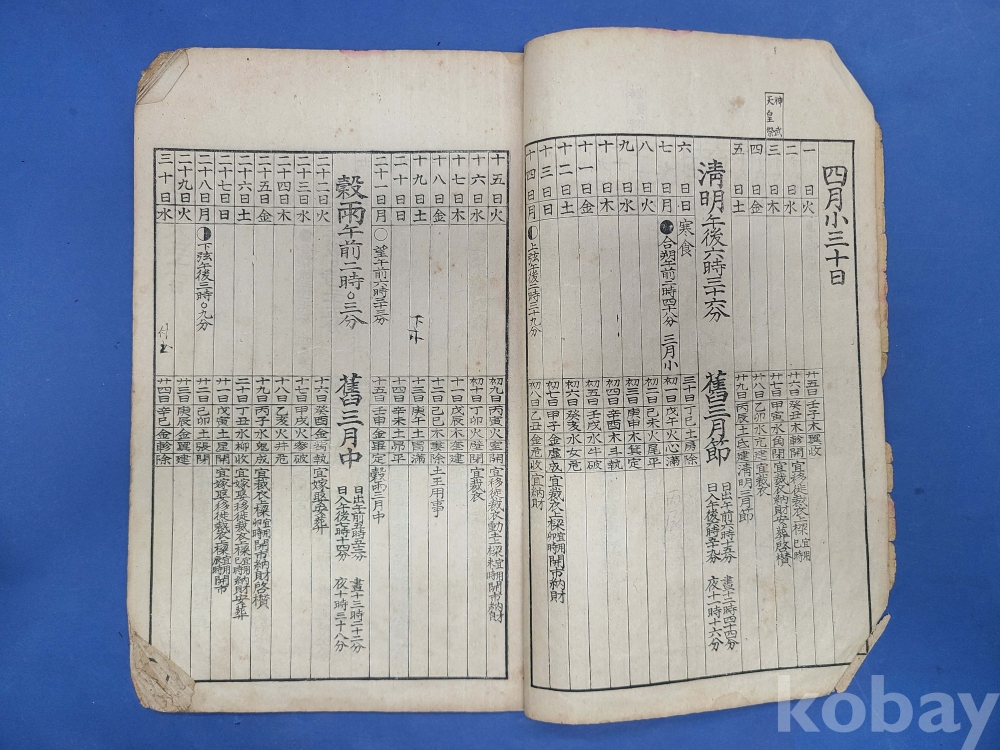 神武天皇祭
四月小三十日
一日火 廿五日壬子木翼收
二日水 廿六日癸丑木軫開宜移徙裁衣上樑宜用巳時
三日木 廿七日甲寅水角閉宜裁衣納財安葬啓欑
四日金 廿八日乙卯水亢建宜裁衣
五日土 廿九日丙辰土氐建清明三月節
清明午後六時三十六分 舊三月節 日出午前六時十五分 晝十二時四十四分
日入午後六時五十九分 夜十一時十六分
六日日 寒食 三十日丁巳土房除
七日月 合朔午前二時四十八分 三月小 初一日戊午火心滿
八日火 初二日己未火尾平
九日水 初三日庚申木箕定
十日木 初四日辛酉木斗執
十一日金 初五日壬戌水牛破
十二日土 初六日癸亥水女危
十三日日 初七日甲子金虛成宜裁衣上樑宜用卯時開市納財
十四日月 上弦午後二時三十九分 初八日乙丑金危收宜納財
十五日火 初九日丙寅火室開宜移徙裁衣動土上樑宜用未時開市納財
十六日水 初十日丁卯火壁閉宜裁衣
十七日木 十一日戊辰木奎建
十八日金 十二日己巳木婁除土王用事
十九日土 十三日庚午土胃滿
二十日日 十四日辛未土昴平
二十一日月 ○望午前六時三十三分 十五日壬申金畢定穀雨三月中
穀雨午前二時〇三分 舊三月中 日出午前五時五十三分 晝十三時二十二分
日入午後七時十四分 夜十時三十八分
二十二日火 十六日癸酉金觜執
二十三日水 十七日甲戌火參破
二十四日木 十八日乙亥火井危
二十五日金 十九日丙子水鬼成宜裁衣上樑宜用卯時開市納財啓欑
二十六日土 二十日丁丑水柳收宜嫁娶移徙裁衣上樑宜用巳時納財安葬
二十七日日 廿一日戊寅土星開宜嫁娶移徙裁衣上樑宜用辰時開市
二十八日月 下弦午後三時〇九分 廿二日己卯土張閉
二十九日火 廿三日庚辰金翼建
三十日水 廿四日辛巳金軫除
kobay